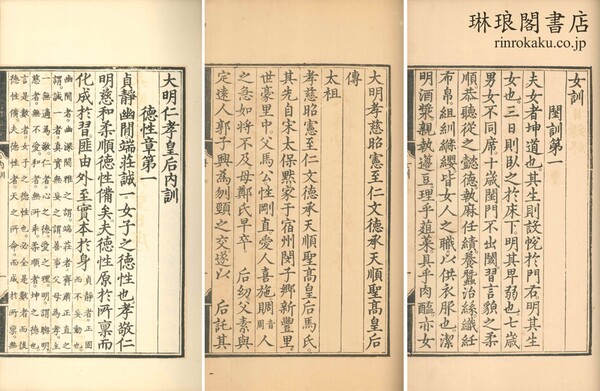 琳琅閣書店
rinrokaku.co.jp
女訓
閨訓第一
夫女者坤道也其生則設帨於門右明其生
女也三日則臥之於床下明其卑弱也七歲
男女不同席十歲閨門不出閤習言貌之柔
順恭聽從之懿德執麻績養蠶治絲織紝
布帛組紃皆女人之職以供衣服也潔
明酒漿親執籩豆理乎葅菜具乎肉醢亦女
大明孝慈昭憲至仁文德承天順聖高皇后
傳
太祖
孝慈昭憲至仁文德承天順聖高皇后馬氏
其先自宋太保默家于宿州閔子鄉新豐里
世豪里中父馬公性剛直愛人喜施賙音周人
之急如將不及母鄭氏早卒 后幼父素與
定遠人郭子興為刎頸之交遂以 后託其
大明仁孝皇后内訓
德性章第一
貞靜幽閒端莊誠一女子之德性也孝敬仁
明慈和柔順德性備矣夫德性原於所稟而
化成於習匪由外至實本於身貞靜者正固而不妄動也
幽閒者幽深閑雅之謂端莊者齊肅正直之